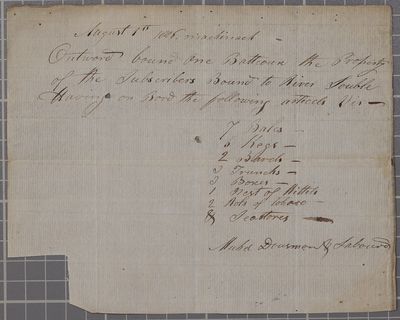 August 1st 1806, mackinack
Outword bound one Battoux the Property
of the Subscribers Bound to River Souble
Having on Bord the following articels Viz
7 Bales
6 Kegs
2 Barels
3 Trunks
3 Boxes
1 Nest of Kittels
2 Rols of tobaco
& Seattores
Dousman &